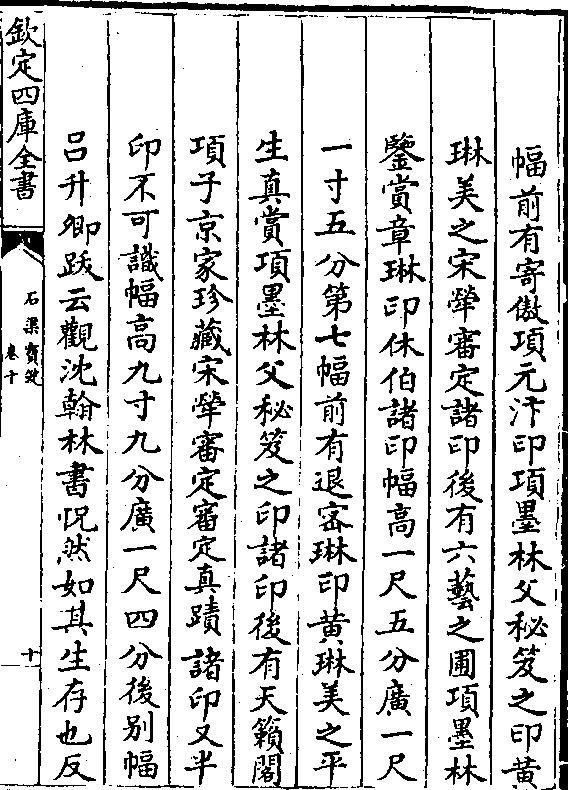 幅前有寄傲項元汴印項墨林父秘笈之印黄
琳美之宋犖審定諸印後有六藝之圃項墨林
鑒賞章琳印休伯諸印幅高一尺五分廣一尺
一寸五分第七幅前有退密琳印黄琳美之平
生真賞項墨林父秘笈之印諸印後有天籟閣
項子京家珍藏宋犖審定審定真蹟諸印又半
印不可識幅高九寸九分廣一尺四分後别幅
吕升卿跋云觀沈翰林書怳然如其生存也反
欽定四庫全書
石渠寳笈
卷十
十一